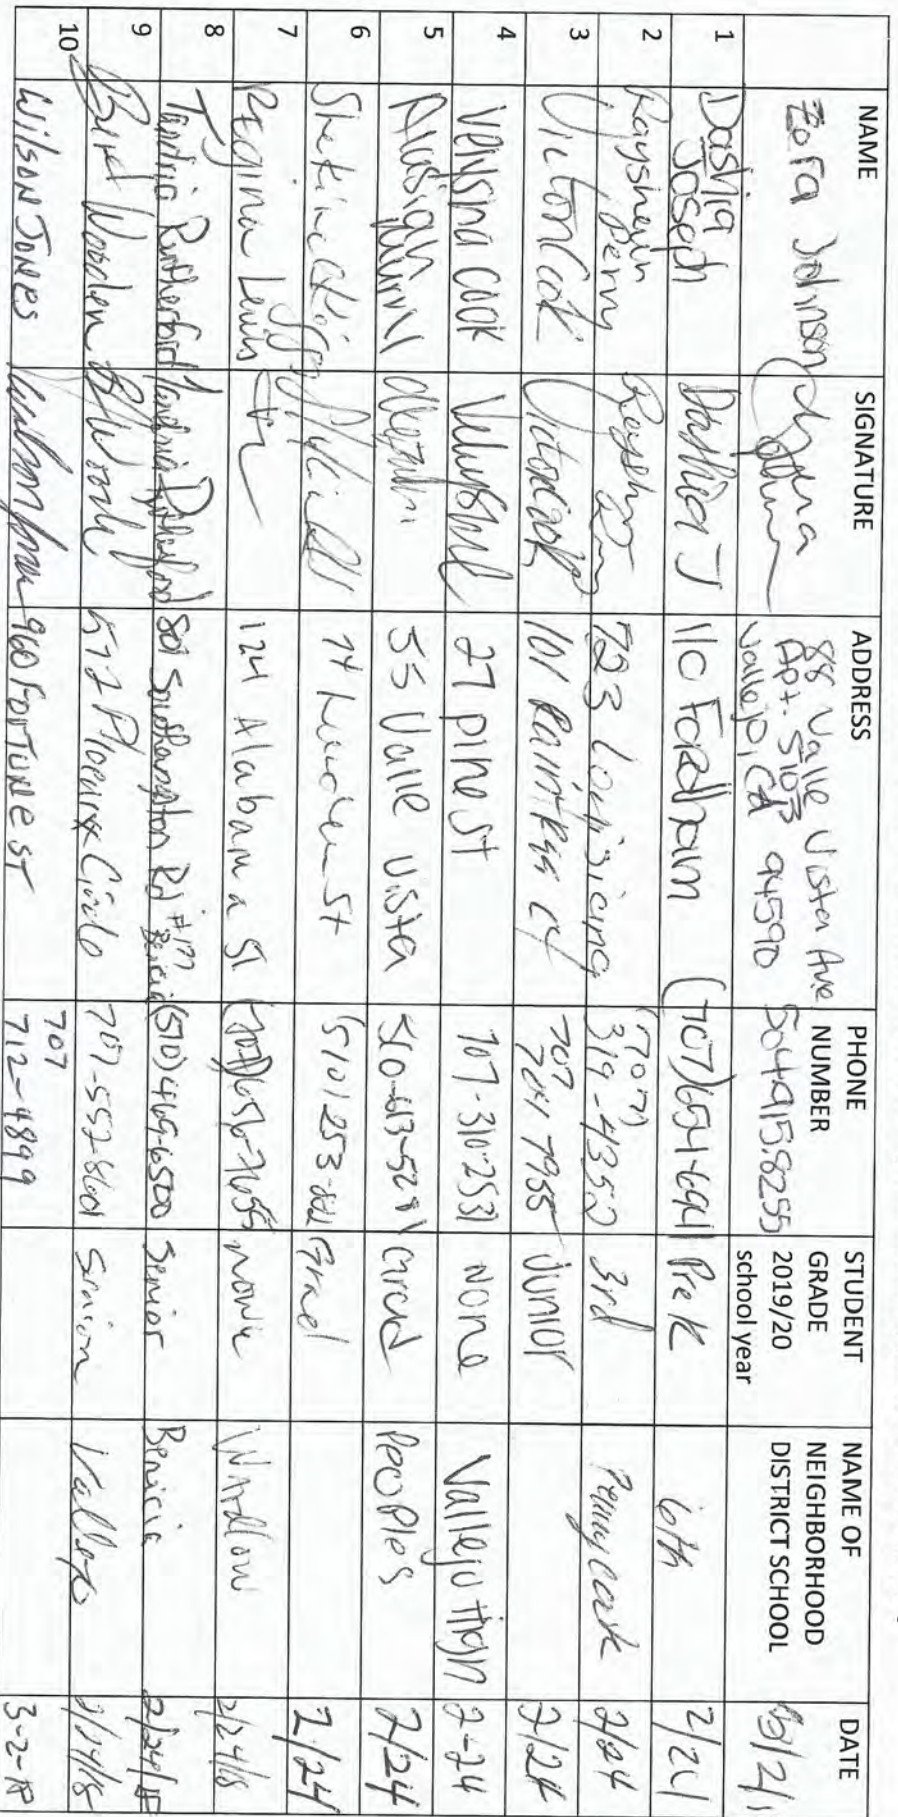 NAME SIGNATURE ADDRESS PHONE NUMBER STUDENT GRADE 2019/20 school year NAME OF NEIGHBORHOOD DISTRICT SCHOOL DATE
Zofa Johnson 88 Valle Vista Ave Apt. 5103 Vallejo, CA 94590 504 915.8255
1 Dashia Joseph Dashia J 110 Fordham (707) 654-6941 Pre K 6th 2/24
2 Rayshawn Perry 723 Louisicing (707) 319-4352 3rd Pennycook 2/24
3 Victor Cook Victor Cook 101 Raintree ct 707 704 7955 Junior 2/24
4 Velysha Cook 27 pine st 707-310-2531 None Vallejo High 2-24
5 55 Valle Vista 510-613-5281 Grad Peoples 2/24
6 St (510) 253- Grad 2/24
7 Regina Lewis 124 Alabama St (707) 656-7655 none Wardlow 2/24/18
8 Rutherford 801 Southampton Rd #177 Benicia (510) 469-6500 Senior Benicia 2/24/18
9 Wooden 572 Phoenix Circle 707-552-8601 Senior Vallejo 2/24/18
10 Wilson Jones 960 FORTUNE ST 707 712-4899 3-2-18